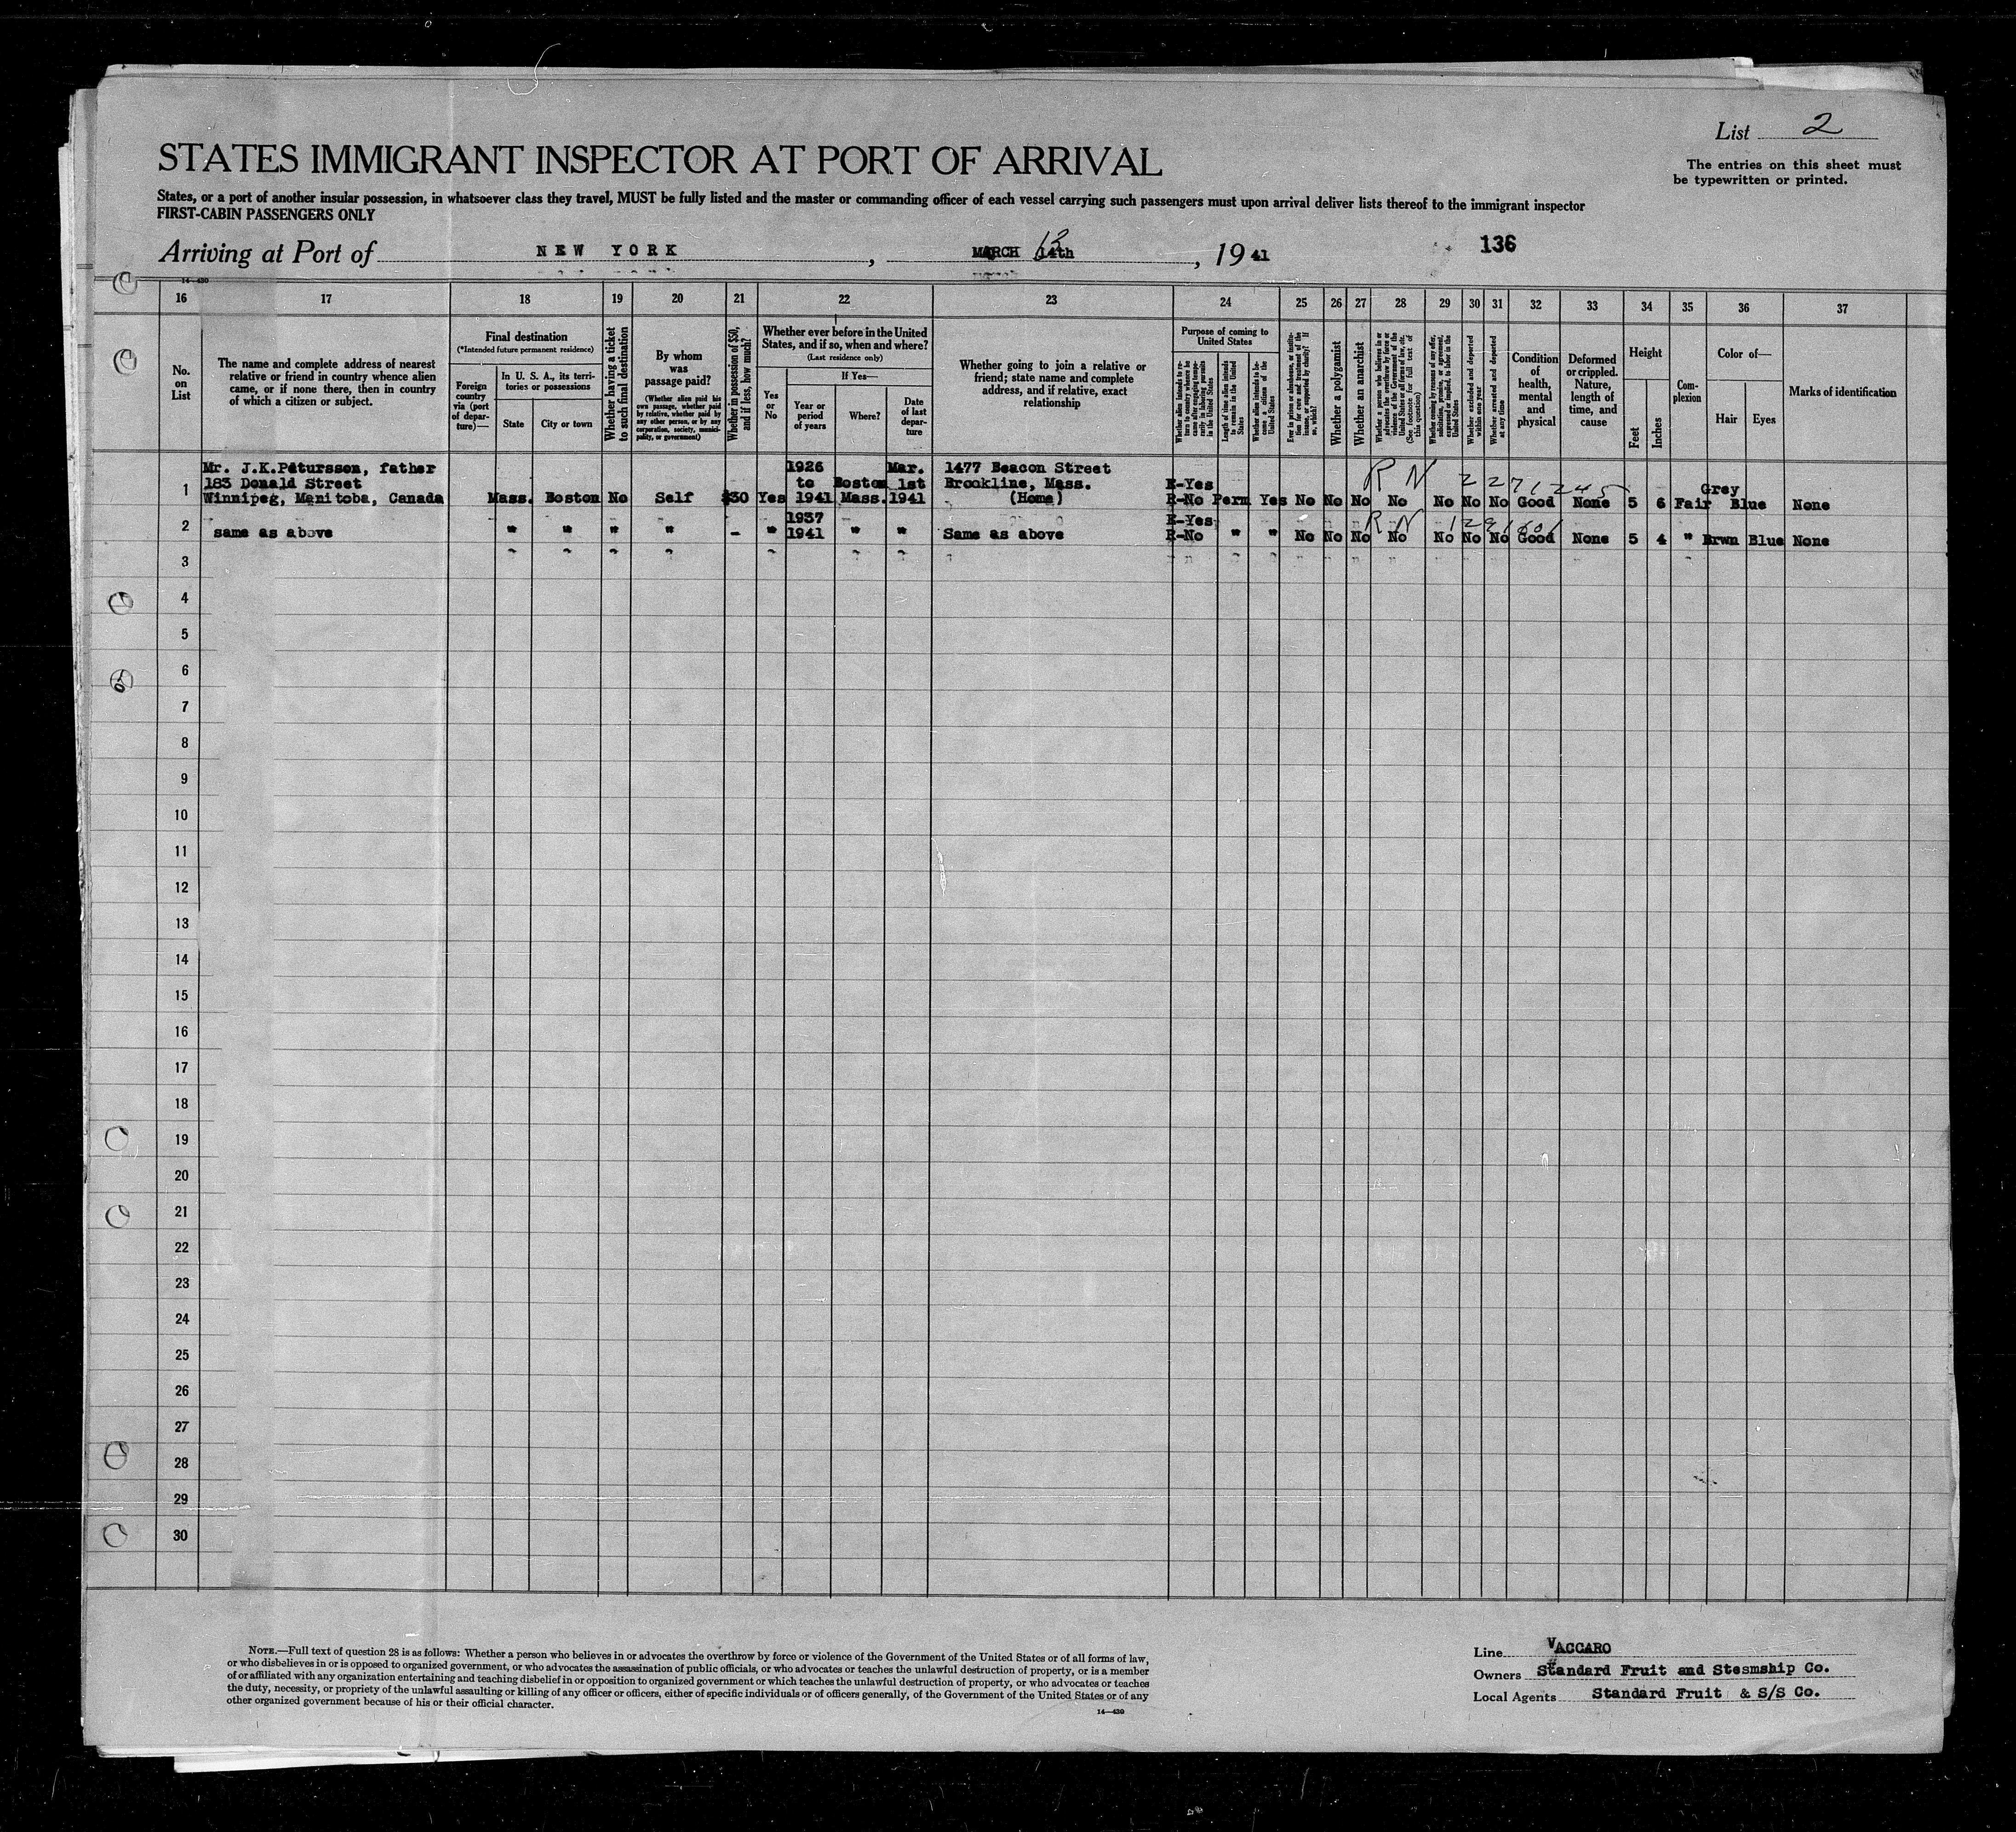 List 2
STATES IMMIGRANT INSPECTOR AT PORT OF ARRIVAL
The entries on this sheet must
be typewritten or printed.
States, or a port of another insular possession, in whatsoever class they travel, MUST be fully listed and the master or commanding officer of each vessel carrying such passengers must upon arrival deliver lists thereof to the immigrant inspector
FIRST-CABIN PASSENGERS ONLY
Arriving at Port of NEW YORK, MARCH 14th 13, 19 41
136
14—430
16 17 18 19 20 21 22 23 24 25 26 27 28 29 30 31 32 33 34 35 36 37
No.
on
List
The name and complete address of nearest
relative or friend in country whence alien
came, or if none there, then in country
of which a citizen or subject.
Final destination
(*Intended future permanent residence)
Foreign
country
via (port
of depar-
ture)—
In U. S. A., its terri-
tories or possessions
State
City or town
Whether having a ticket
to such final destination
By whom
was
passage paid?
(Whether alien paid his
own passage, whether paid
by relative, whether paid by
any other person, or by any
corporation, society, munici-
pality, or government)
Whether in possession of $50,
and if less, how much?
Whether ever before in the United
States, and if so, when and where?
(Last residence only)
Yes
or
No
If Yes—
Year or
period
of years
Where?
Date
of last
depar-
ture
Whether going to join a relative or
friend; state name and complete
address, and if relative, exact
relationship
Purpose of coming to
United States
Whether alien intends to re-
turn to country whence he
came after engaging tempo-
rarily in laboring pursuits
in the United States
Length of time alien intends
to remain in the United
States
Whether alien intends to be-
come a citizen of the
United States
Ever in prison or almshouse, or institu-
tion for care and treatment of the
insane, or supported by charity? If
so, which?
Whether a polygamist
Whether an anarchist
Whether a person who believes in or
advocates the overthrow by force or
violence of the Government of the
United States or all forms of law, etc.
(See footnote for full text of
this question)
Whether coming by reasons of any offer,
solicitation, promise, or agreement,
expressed or implied, to labor in the
United States
Whether excluded and deported
within one year
Whether arrested and deported
at any time
Condition
of
health,
mental
and
physical
Deformed
or crippled.
Nature,
length of
time, and
cause
Height
Feet
Inches
Com-
plexion
Color of—
Hair
Eyes
Marks of identification
Mr. J.K.Pétursson, father 1926 Mar. 1477 Beacon Street R N 2271245
183 Donald Street to Boston 1st Brookline, Mass. E-Yes Grey
1 Winnipeg, Manitoba, Canada Mass. Boston No Self $30 Yes 1941 Mass. 1941 (Home) R-No Perm Yes No No No No No No No Good None 5 6 Fair Blue None
1937 E-Yes R N 1291601
2 same as above " " " " - " 1941 " " Same as above R-No " " No No No No No No No Good None 5 4 " Brwn Blue None
3
4
5
6
7
8
9
10
11
12
13
14
15
16
17
18
19
20
21
22
23
24
25
26
27
28
29
30
NOTE.—Full text of question 28 is as follows: Whether a person who believes in or advocates the overthrow by force or violence of the Government of the United States or of all forms of law,
or who disbelieves in or is opposed to organized government, or who advocates the assassination of public officials, or who advocates or teaches the unlawful destruction of property, or is a member
of or affiliated with any organization entertaining and teaching disbelief in or opposition to organized government or which teaches the unlawful destruction of property, or who advocates or teaches
the duty, necessity, or propriety of the unlawful assaulting or killing of any officer or officers, either of specific individuals or of officers generally, of the Government of the United States or of any
other organized government because of his or their official character.
14—430
Line VACCARO
Owners Standard Fruit and Stesmship Co.
Local Agents Standard Fruit & S/S Co.